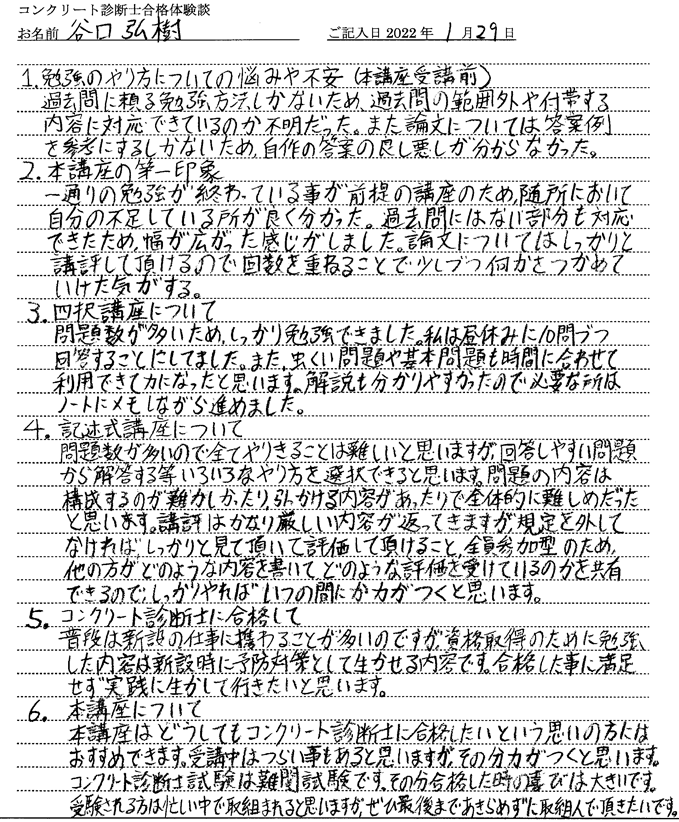 コンクリート診断士合格体験談
お名前 谷口 弘樹 ご記入日 2022 年 1 月 29 日
1.勉強のやり方についての悩みや不安(本講座受講前)
過去問に頼る勉強方法しかないため、過去問の範囲外や付帯する
内容に対応できているのか不明だった。また論文については、答案例
を参考にするしかないため、自作の答案の良し悪しが分からなかった。
2.本講座の第一印象
一通りの勉強が終わっている事が前提の講座のため、随所において
自分の不足している所が良く分かった。過去問にはない部分も対応
できたため、幅が広がった感じがしました。論文についてはしっかりと
講評して頂けるので回数を重ねることで少しづつ何かをつかめて
いけた気がする。
3.四択講座について
問題数が多いため、しっかり勉強できました。私は昼休みに10問づつ
回答することにしてました。また、虫くい問題や基本問題も時間に合わせて
利用できて力になったと思います。解説も分かりやすかったので必要な所は
ノートにメモしながら進めました。
4.記述式講座について
問題数が多いので全てやりきることは難しいと思いますが、回答しやすい問題
から解答する等いろいろなやり方を選択できると思います。問題の内容は
構成するのが難かしかったり、引っかける内容があったりで全体的に難しめだった
と思います。講評はかなり厳しい内容が返ってきますが、規定を外して
なければ、しっかりと見て頂いて評価して頂けること、全員参加型のため、
他の方がどのような内容を書いて、どのような評価を受けているのかを共有
できるので、しっかりやればいつの間にか力がつくと思います。
5.コンクリート診断士に合格して
普段は新設の仕事に携わることが多いのですが、資格取得のために勉強
した内容は新設時に予防対策として生かせる内容です。合格した事に満足
せず実践に生かして行きたいと思います。
6.本講座について
本講座はどうしてもコンクリート診断士に合格したいという思いの方には
おすすめできます。受講中はつらい事もあると思いますが、その分力がつくと思います。
コンクリート診断士試験は難関試験です。その分合格した時の喜びは大きいです。
受験される方は忙しい中で取組まれると思いますが、ぜひ最後まであきらめずに取組んで頂きたいです。